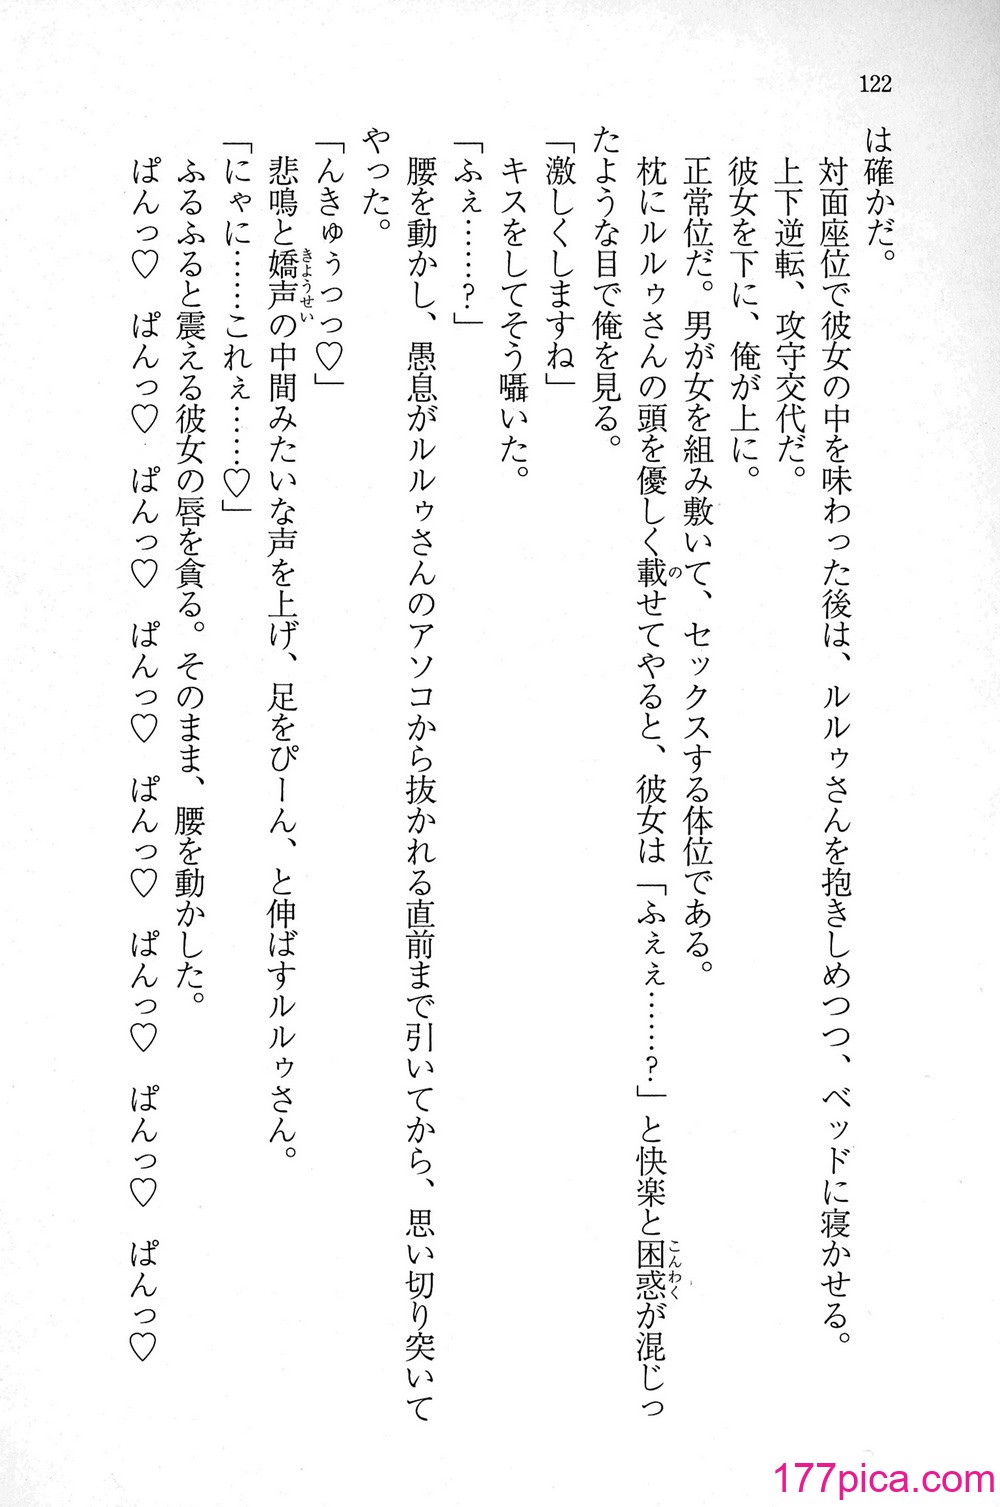 122
は確かだ。
対面座位で彼女の中を味わった後は、ルルゥさんを抱きしめつつ、ベッドに寝かせる。
上下逆転、攻守交代だ。
彼女を下に、俺が上に。
正常位だ。男が女を組み敷いて、セックスする体位である。
の
こんわく
枕にルルゥさんの頭を優しく載せてやると、彼女は「ふぇぇ……?」と快楽と困惑が混じっ
たような目で俺を見る。
「激しくしますね」
キスをしてそう囁いた。
「ふぇ……?」
腰を動かし、愚息がルルゥさんのアソコから抜かれる直前まで引いてから、思い切り突いて
やった。
「んきゅぅっっ♡」
きようせい
悲鳴と嬌声の中間みたいな声を上げ、足をぴーん、と伸ばすルルゥさん。
「にゃに……これぇ……♡」
ふるふると震える彼女の唇を貪る。そのまま、腰を動かした。
ぱんっ♡ ぱんっ♡ ぱんっ♡ ぱんっ♡ ぱんっ♡ ぱんっ♡ ぱんっ♡ ぱんっ♡
177pica.com